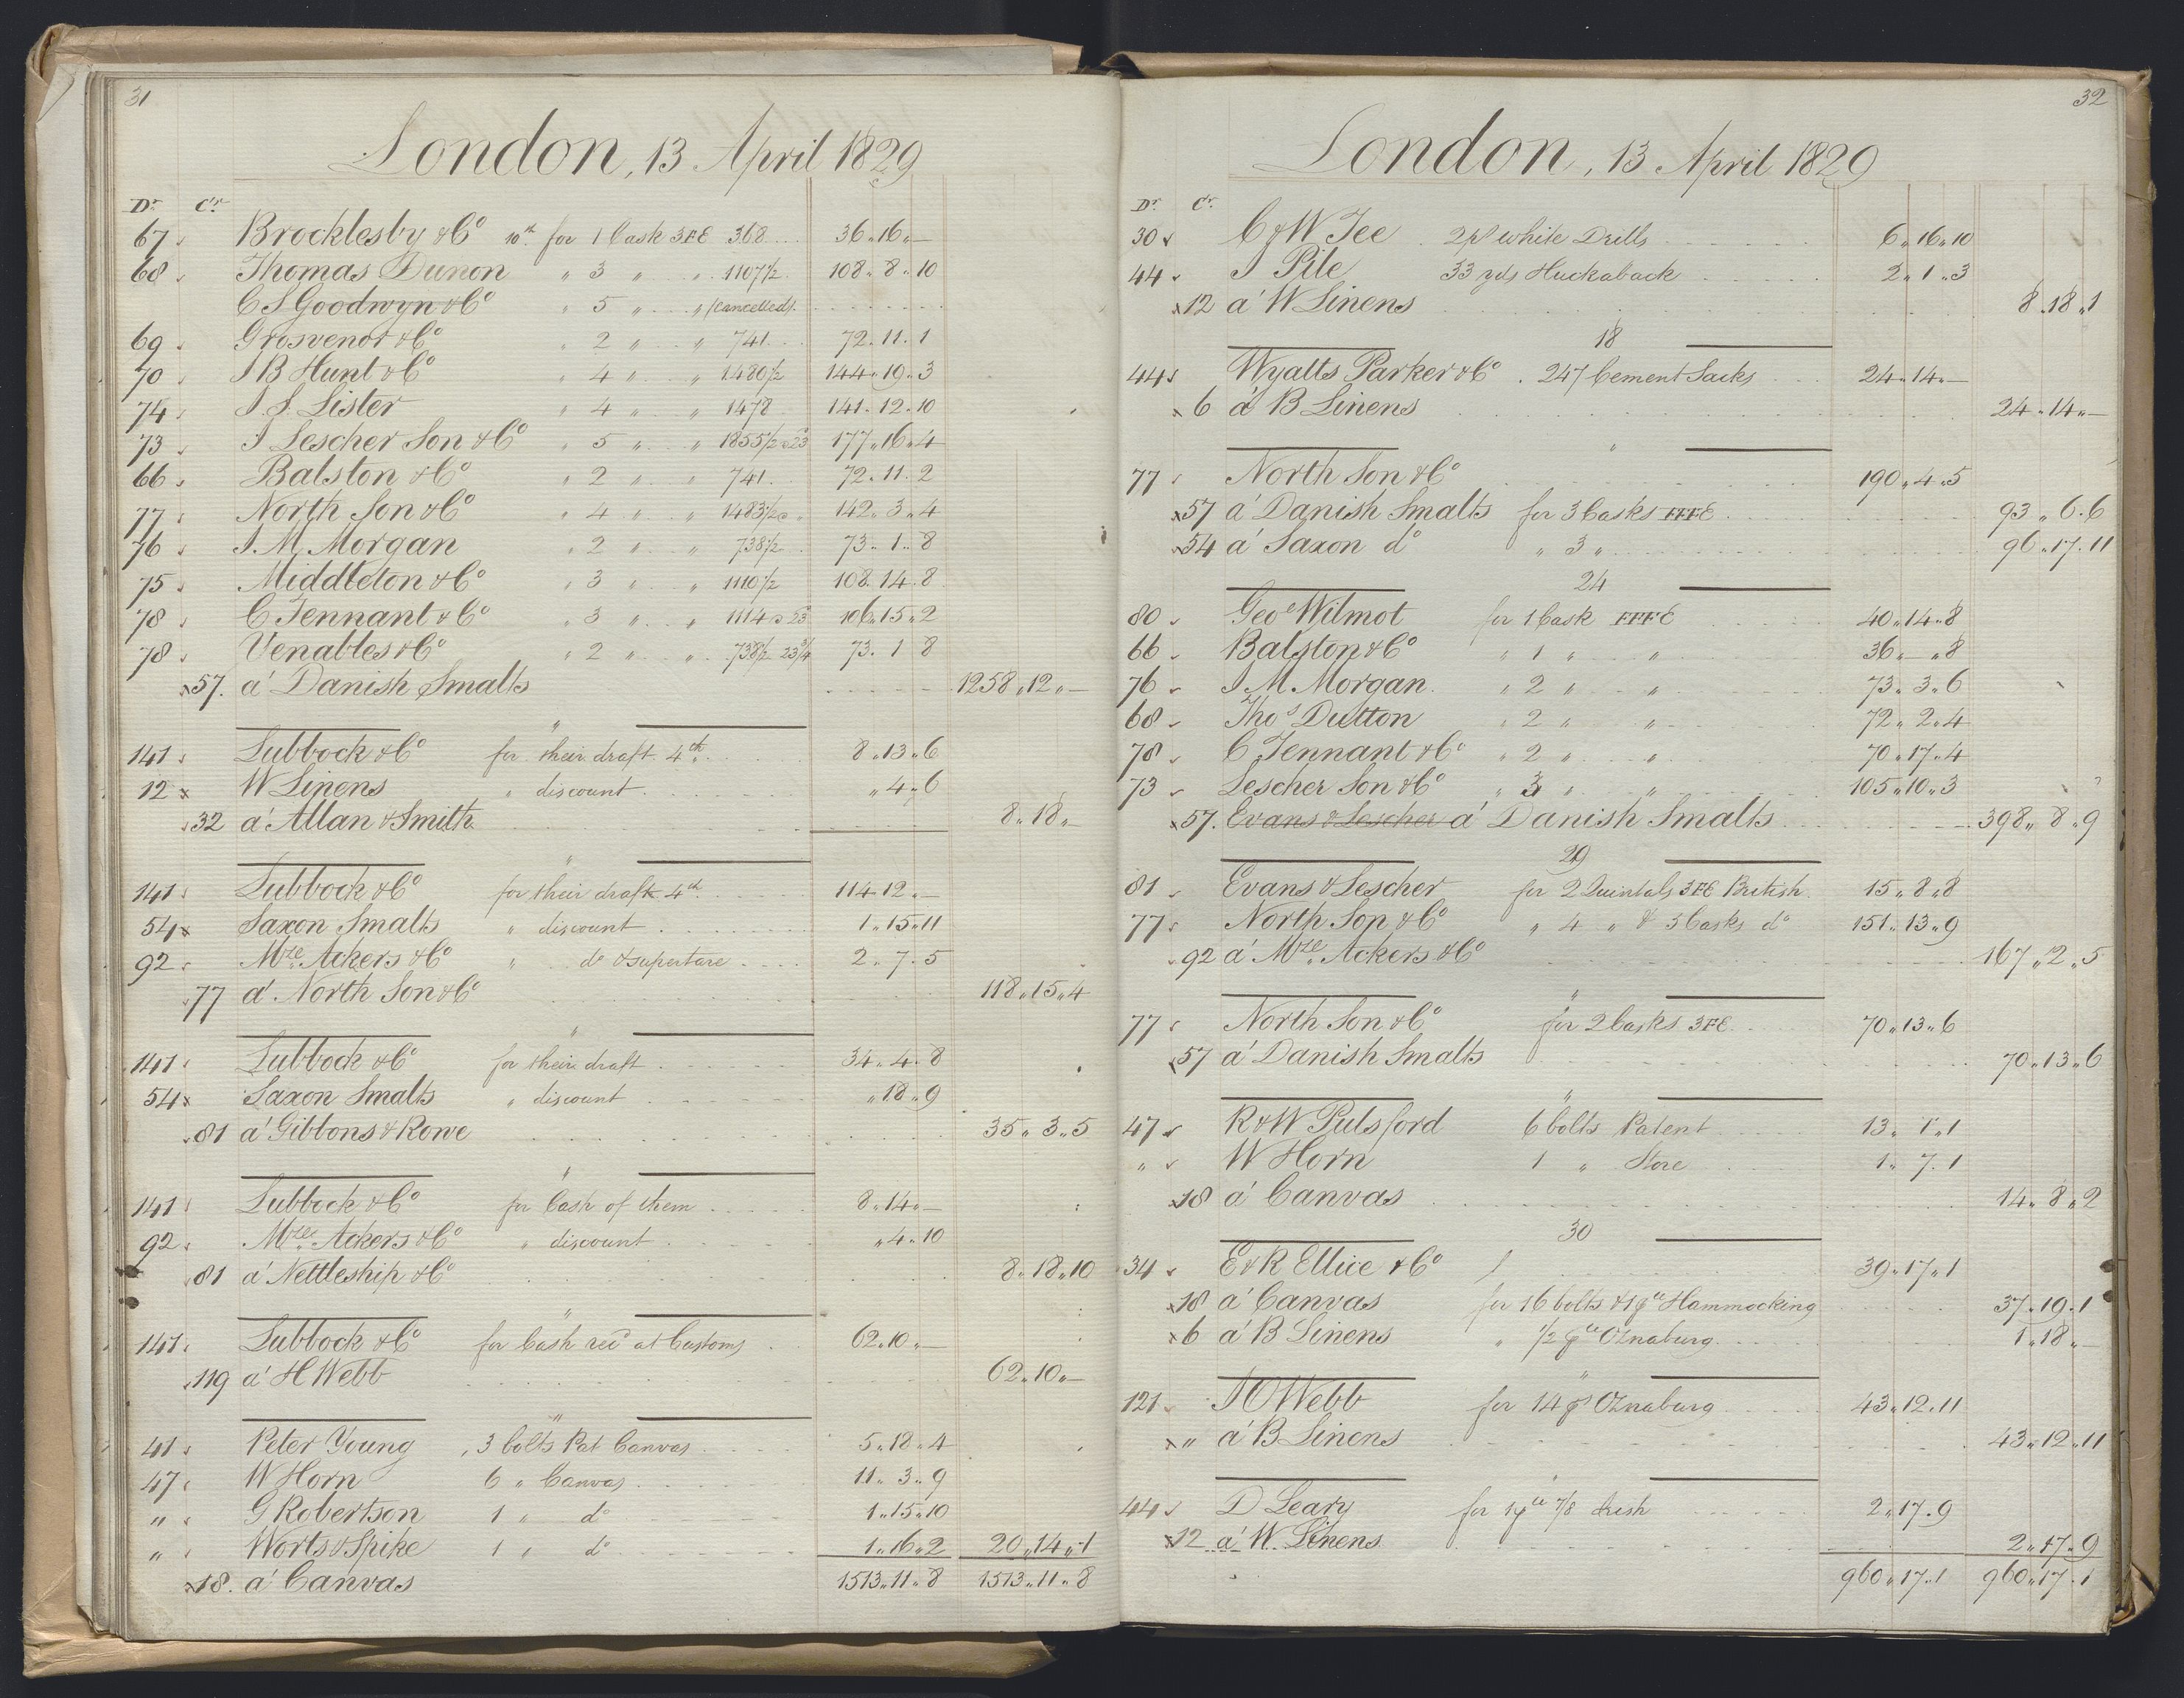 31
London, 13 April 1829
Dr. Cr.
67 Brocklesby & Co 10th for 1 Cask 3FE 368 36 " 16 " —
68 Thomas Dunon " 3 " " 1107 1/2 108 " 8 " 10
C S Goodwyn & Co " 5 " " (Cancelled)
69 Grosvenor & Co " 2 " " 741 72 . 11 . 1
70 J B Hunt & Co " 4 " " 1480 1/2 144 " 19 " 3
74 J. S. Lister " 4 " " 1478 141 . 12 . 10
73 J Lescher Son & Co " 5 " " 1855 1/2 @ 23 177 " 16 " 4
66 Balston & Co " 2 " " 741 72 . 11 . 2
77 North Son & Co " 4 " " 1483 1/2 @ " 142 " 3 " 4
76 J. M. Morgan " 2 " " 738 1/2 73 " 1 " 8
75 Middleton & Co " 3 " " 1110 1/2 108 . 14 . 8
78 C Tennant & Co " 3 " " 1114 @ 23 106 " 15 " 2
78 Venables & Co " 2 " " 738 1/2 23 3/4 73 . 1 8
57. a' Danish Smalts 1258 " 12 " —
"
141 Lubbock & Co for their draft 4th 8 " 13 " 6
12 W Linens " discount " 4 " 6
32 a' Allan & Smith 8 " 18 " —
"
141 Lubbock & Co for their draft 4th 114 " 12 " —
54 Saxon Smalts " discount 1 " 15 " 11
92 Mze Ackers & Co " do & supertare 2 " 7 . 5
77 a' North Son & Co 118 " 15 " 4
"
141 Lubbock & Co for their draft 34 " 4 " 8
54 Saxon Smalts " discount " 18 " 9
81 a' Gibbons & Rowe 35 " 3 " 5
"
141 Lubbock & Co for Cash of them 8 " 14 " —
92 Mze Ackers & Co " discount " 4 " 10
81 a' Nettleship & Co 8 " 18 " 10
"
141 Lubbock & Co for Cash recd at Customs 62 " 10 " —
119 a' H Webb 62 " 10 " —
"
41 Peter Young 3 bolts Pat Canvas 5 " 18 " 4
47 W Horn 6 " Canvas 11 " 3 " 9
" G Robertson 1 " do 1 " 15 " 10
" Worts & Spike 1 " do 1 " 16 " 2 20 " 14 " 1
18. a' Canvas 1513 " 11 " 8 1513 " 11 " 8
32
London, 13 April 1829
Dr. Cr.
30 C & W Tee 2 ps white Drills 6 " 16 " 10
44 J Pile 33 yds Huckaback 2 " 1 " 3
12 a' W Linens 8 " 18 " 1
18
44 Wyatts Parker & Co . 247 Cement Sacks 24 " 14 " —
6 a' B Linens 24 " 14 " —
"
77 North Son & Co 190 " 4 " 5
57 a' Danish Smalts for 3 Casks FFFE 93 " 6 . 6
54 a' Saxon do " 3 " 96 " 17 . 11
24
80 Geoe Wilmot for 1 Cask FFFE 40 " 14 " 8
66 Balston & Co " 1 " " 36 " — " 8
76 J M Morgan " 2 " " 73 " 3 " 6
68 Thos Dutton " 2 " " 72 " 2 " 4
78 C Tennant & Co " 2 " " 70 " 17 " 4
73 Lescher Son & Co " 3 " " 105 " 10 " 3
57. Evans & Lescher a' Danish Smalts 398 " 8 " 9
29
81 Evans & Lescher for 2 Quintals 3FE British 15 " 8 " 8
77 North Son & Co " 4 " & 3 Casks do 151 " 13 " 9
92 a' Mze Ackers & Co 167 " 2 " 5
"
77 North Son & Co for 2 Casks 3FE 70 " 13 " 6
57 a' Danish Smalts 70 " 13 " 6
"
47 R & W Pulsford 6 bolts Patent 13 " 1 " 1
" W Horn 1 " Store 1 " 7 . 1
18 a' Canvas 14 " 8 " 2
30
34 E & R Ellice & Co 39 " 17 " 1
18 a' Canvas for 16 bolts & 1 pce Hammocking 37 " 19 " 1
6 a' B Linens " 1/2 pce Oznaburg 1 " 18 " —
"
121 J O Webb for 14 ps Oznaburg 43 " 12 " 11
" a' B Linens 43 " 12 " 11
"
44 D Leary for 1 pce 7/8 Irish 2 " 17 " 9
12 a' W. Linens 2 " 17 " 9
960 " 17 " 1 960 " 17 " 1